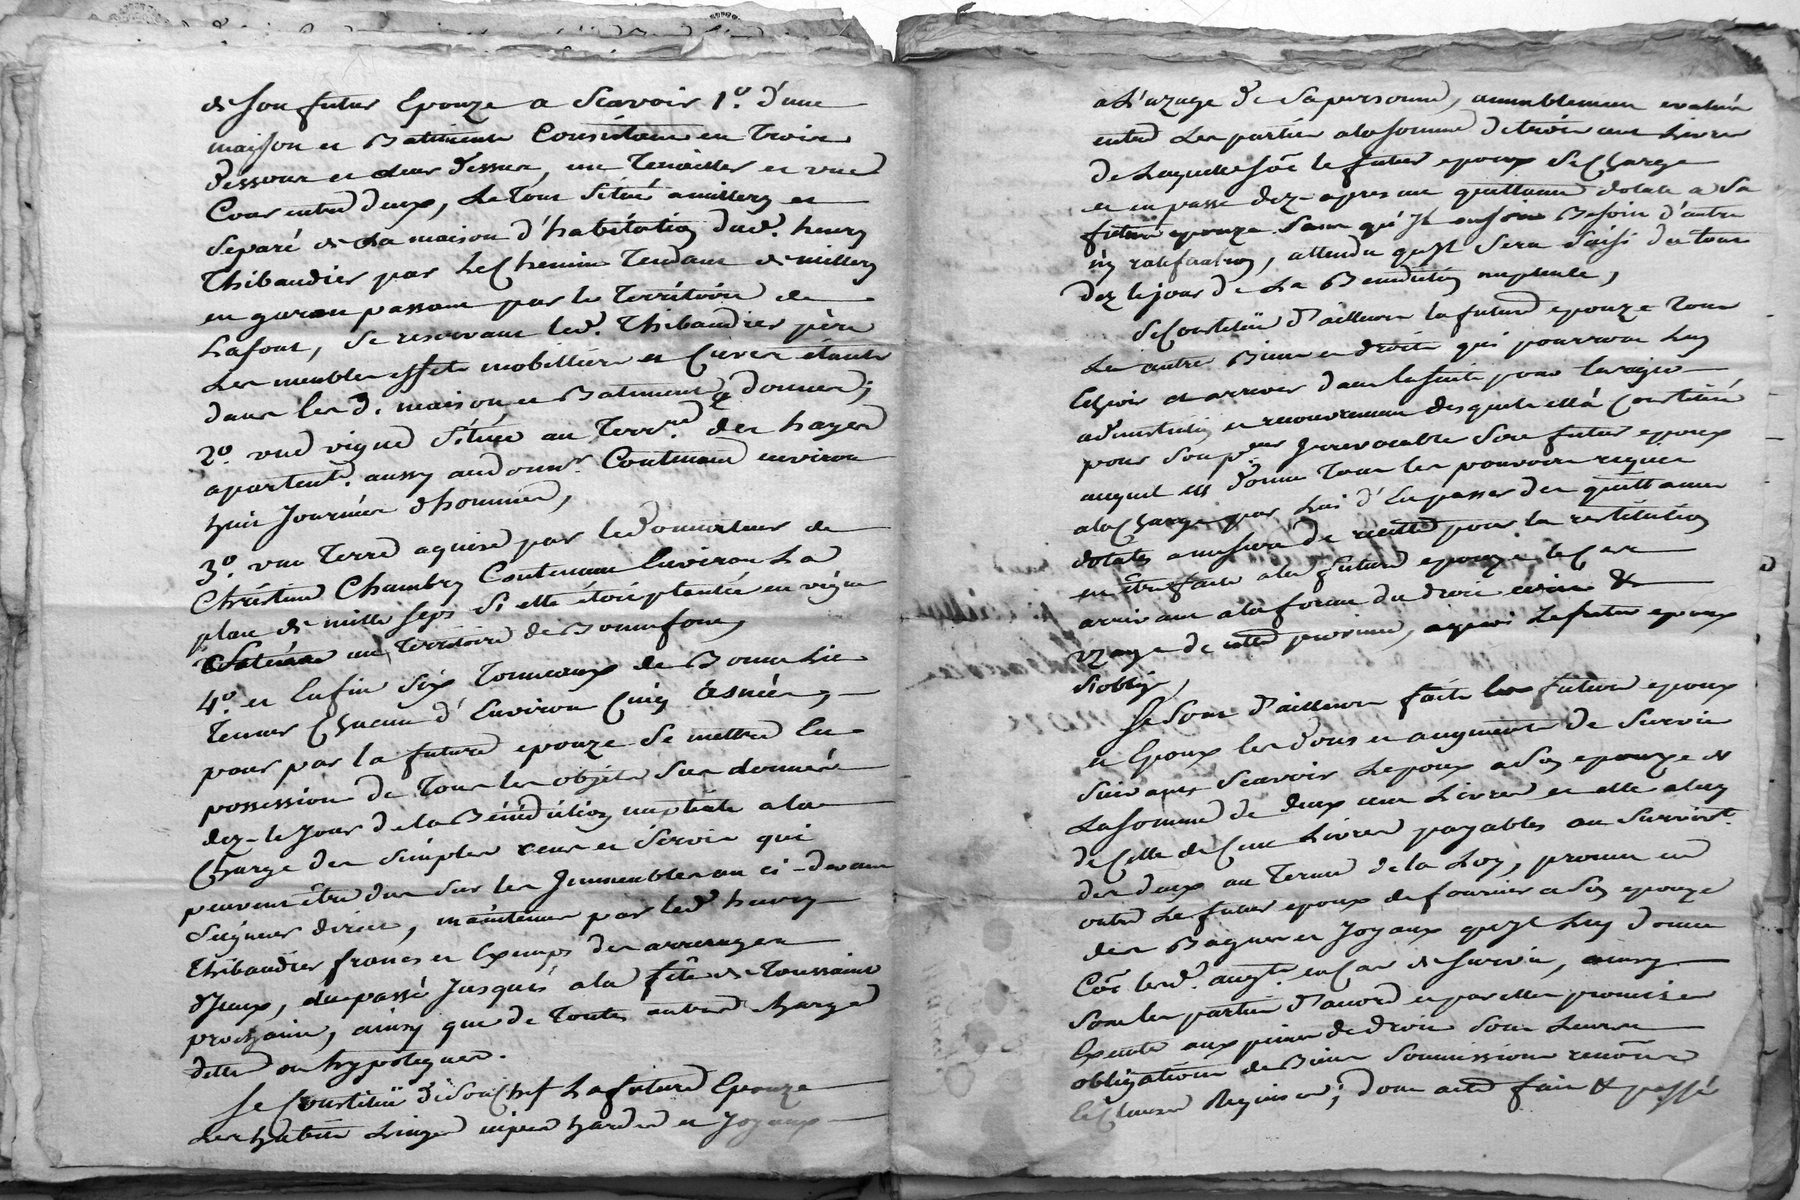 de son futur Epouze a Scavoir 1º. d'une
maison et Batiments Consistant en trois
dessous et deux dessus, un Tenailler et une
Cour entre deux, Le tout Situé a millery et
Separé de la maison d'habitation dud. henry
Thibaudier par Le Chemin Tendant de millery
en passant par le Territoire de
Lafont, se reservant led. Thibaudier père
Les meubles effets mobilliers et Cuves étants
dans les d. maison et Batiments donnés;
2º. une vigne Située au Terrre. des hayes
apartente. aussy aud. Contenant environ
huit Journées d'hommes,
3º. une Terre aquise par le donnateur de
Christine Chambry Contenant Environ La
place de mille seps Si elle étoit plantée en vigne
Située au Territoire de Bonnefond
4º. et Enfin Six Tonneaux de Bonne Lie
Tenant Chacun d'Environ Cinq asnées,
pour par la future epouze Se mettre En
possession de Tous les objets Sus donnés
dez-le Jour de la Bénédiction nuptiale a la
Charge des Simples cens et Servis qui
peuvent être dus Sur les Immeubles au ci-devant
Seigneur direct, maintenus par led. henry
Thibaudier francs et Exempts des arrerages
d'Iceux, du passé Jusqu'à la fête de Toussaint
prochaine, ainsy que de Toutes autres Charges
dettes ou hypoteques.
Se Constitüe de Son Chef La future Epouze
Les habits Linges nipes hardes et Joyaux
a L'uzage de Sa personne, amiablement evalués
entre Les parties a la somme de trois cent Livres
de Laquelle some le futur epoux Se Charge
et en passe dez-apresent quittance dotale a Sa
future epouze Sans qu'Il en soit Besoin d'autre
ny ratification, attendu qu'Il Sera Saisi du tout
dez le jour de La Benediction nuptiale,
Se Constitüe d'ailleurs la future epouze Tous
Les autres Biens et droits qui pourront Luy
Echoir et arriver dans la suite pour
et recouvrement desquels elle a Constitué
pour Son Irrevocable Son futur epoux
auquel elle donne Tous les pouvoirs requis
a la Charge par Lui d'En passer des quittances
dotales a mesure de recette pour la restitution
en être faite a la future epouze le Cas
arrivant a la forme du droit ecrit &
uzage de cette province, a quoi Le futur epoux
s'oblige,
Se Sont d'ailleurs faits les futurs epoux
et Epouze les dons et augments de Survie
Suivants Scavoir L'epoux a Son epouze de
La Somme de deux cent Livres et elle a luy
de Celle de Cent Livres payables au Survivt.
des deux au Terme de la Loy, promet en
outre Le futur epoux de fournir a Son epouze
des Bagues et Joyaux qu'Il Luy donne
Cõe led. augt. en Cas de Survie, ainsy
Sont les parties d'accord et par elles promis
Executer aux peines de droit Sous Leurs
obligations de Biens Soumissions renõns &
Clauses Requises; dont acte fait & passé